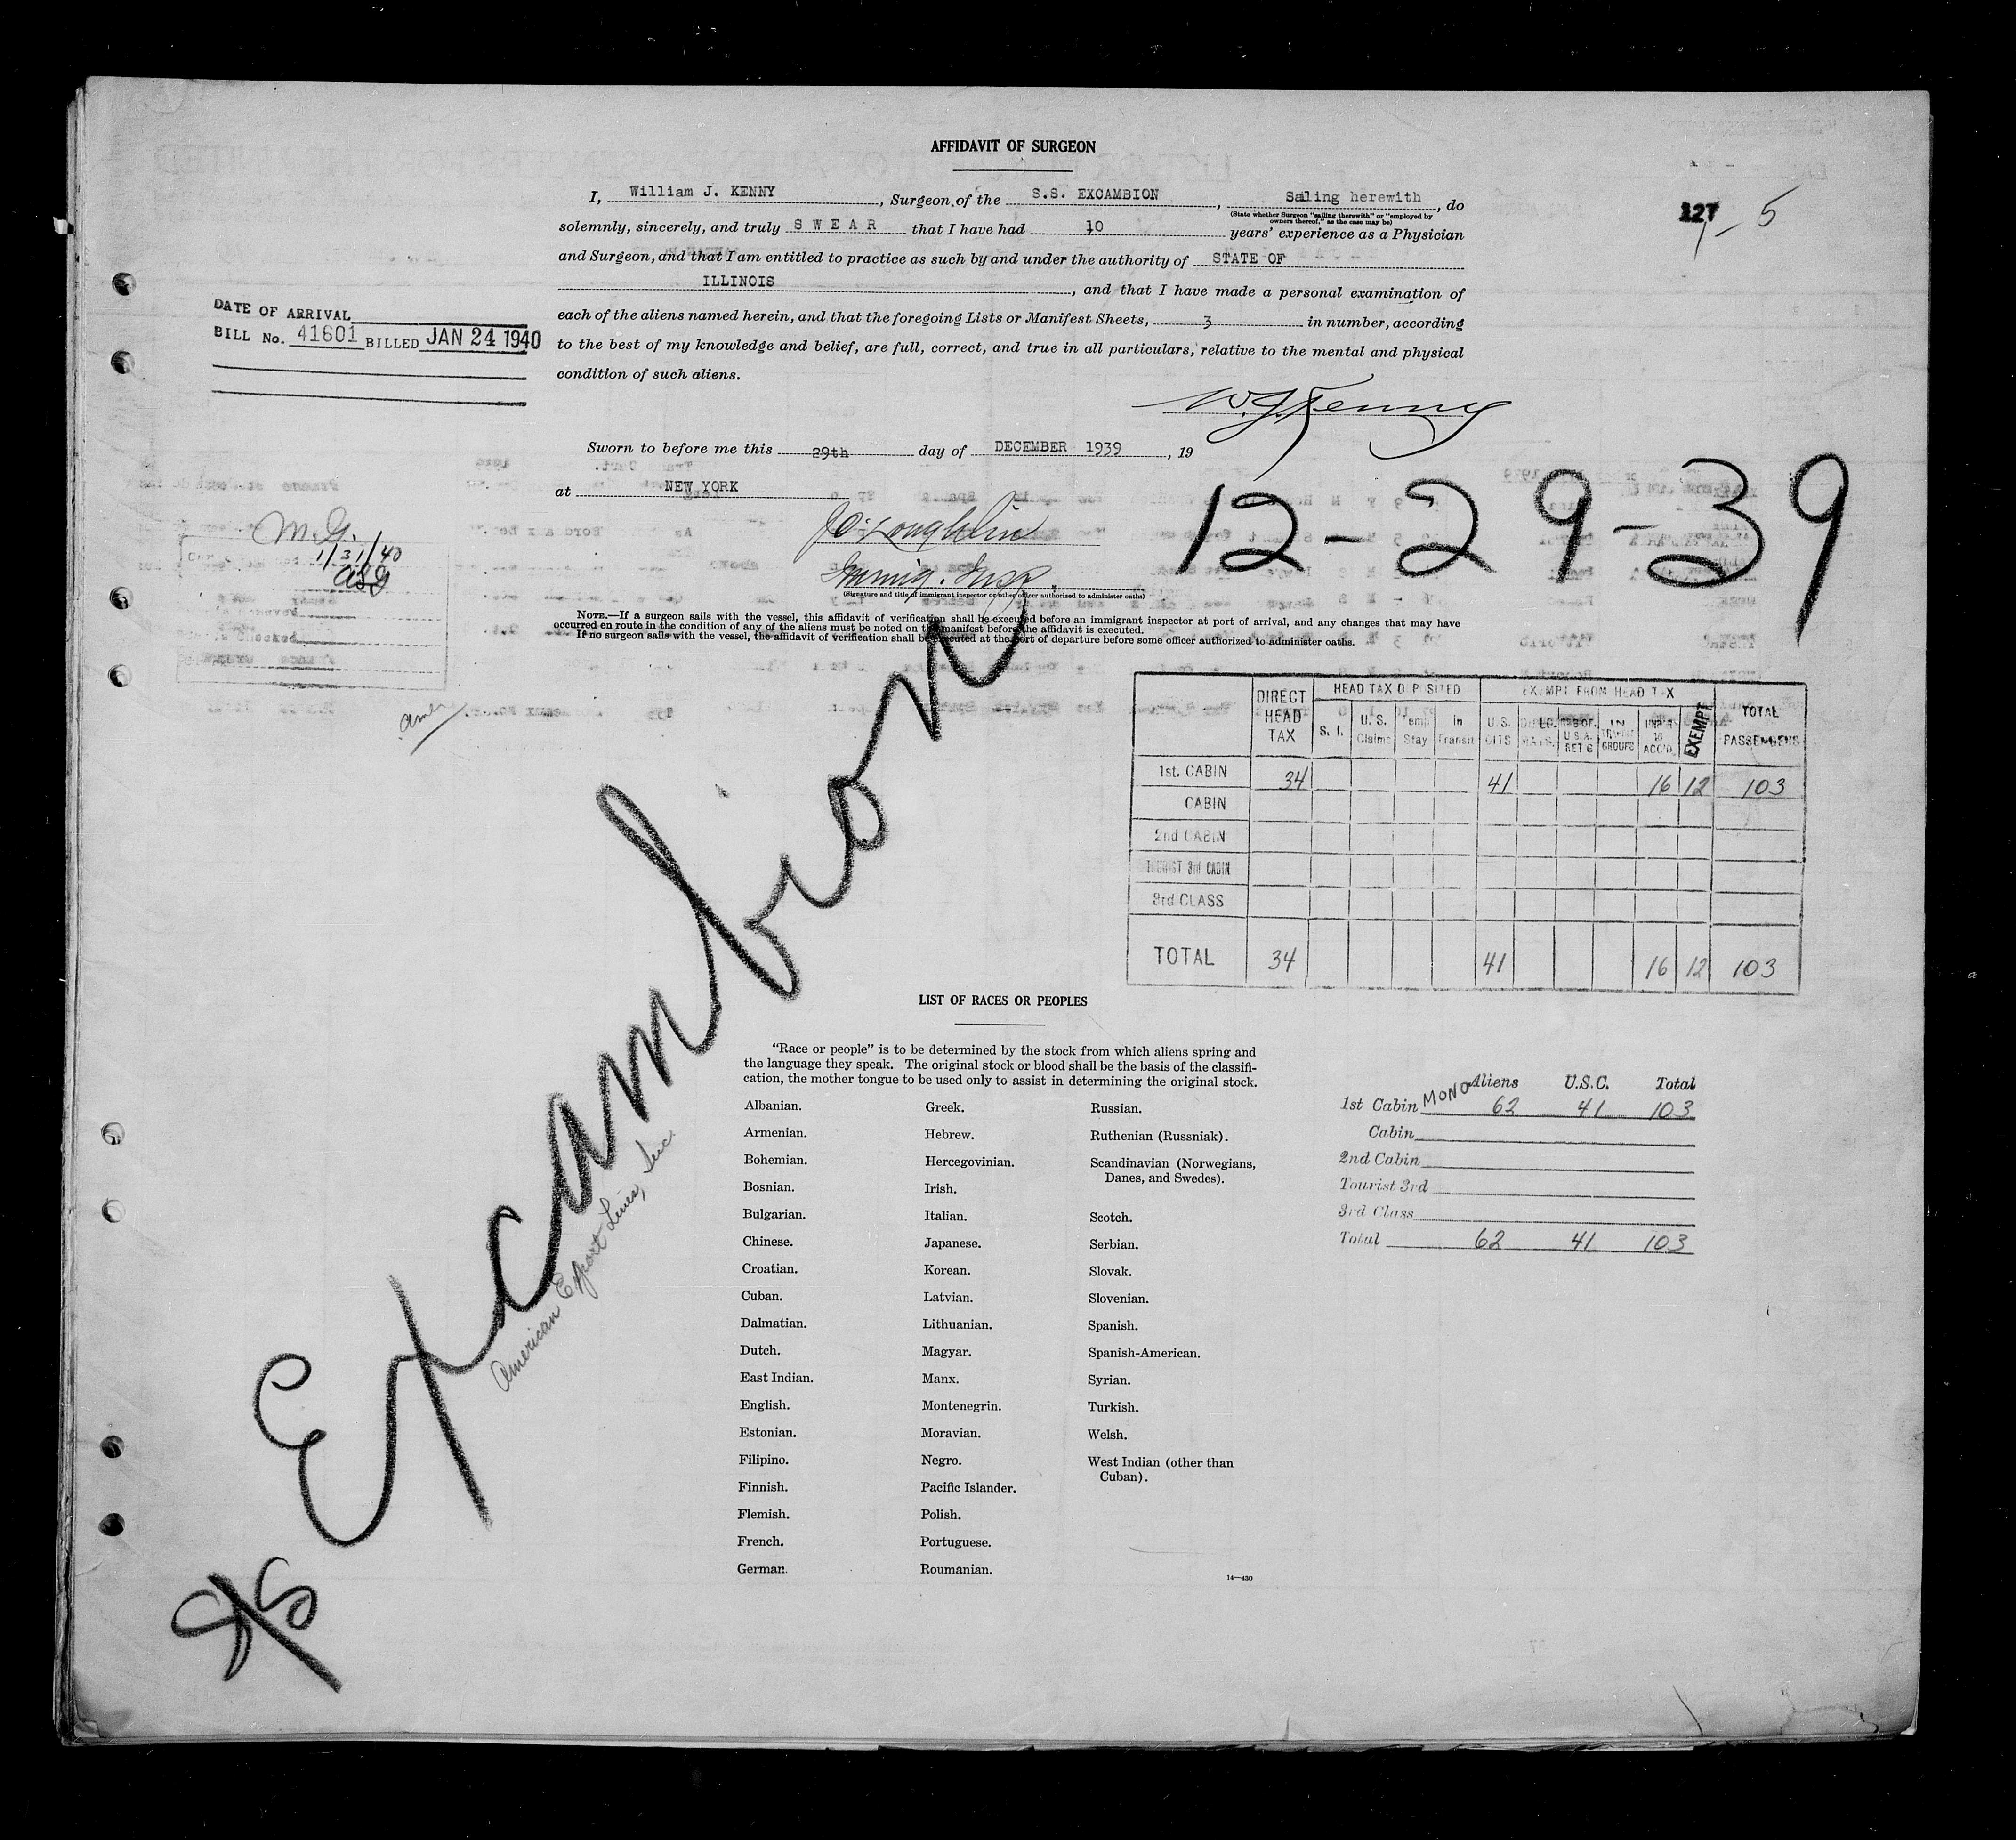 AFFIDAVIT OF SURGEON
127
1-5
I, William J. KENNY, Surgeon of the S.S. EXCAMBION, Saling herewith, do
(State whether Surgeon "sailing therewith" or "employed by
owners thereof," as the case may be)
solemnly, sincerely, and truly S W E A R that I have had 10 years' experience as a Physician
and Surgeon, and that I am entitled to practice as such by and under the authority of STATE OF
ILLINOIS, and that I have made a personal examination of
each of the aliens named herein, and that the foregoing Lists or Manifest Sheets, 3 in number, according
to the best of my knowledge and belief, are full, correct, and true in all particulars, relative to the mental and physical
condition of such aliens.
DATE OF ARRIVAL
BILL No. 41601 BILLED JAN 24 1940
W.J. Kenny
Sworn to before me this 29th day of DECEMBER 1939, 19
at NEW YORK
12-29-39
M.G.
1/31/40
Immig. Insp.
(Signature and title of immigrant inspector or other officer authorized to administer oaths)
NOTE.—If a surgeon sails with the vessel, this affidavit of verification shall be executed before an immigrant inspector at port of arrival, and any changes that may have
occurred en route in the condition of any of the aliens must be noted on the manifest before the affidavit is executed.
If no surgeon sails with the vessel, the affidavit of verification shall be executed at the port of departure before some officer authorized to administer oaths.
DIRECT HEAD TAX
HEAD TAX DEPOSITED
EXEMPT FROM HEAD TAX
TOTAL PASSENGERS
S. I. U. S. Claims Temp Stay in Transit U.S. CITS IN TRANSIT GROUPS EXEMPT
1st. CABIN 34 41 16 12 103
CABIN
2nd CABIN
TOURIST 3rd CABIN
3rd CLASS
TOTAL 34 41 16 12 103
S/S Excambion
American Export Lines, Inc.
LIST OF RACES OR PEOPLES
"Race or people" is to be determined by the stock from which aliens spring and
the language they speak. The original stock or blood shall be the basis of the classifi-
cation, the mother tongue to be used only to assist in determining the original stock.
Albanian.
Armenian.
Bohemian.
Bosnian.
Bulgarian.
Chinese.
Croatian.
Cuban.
Dalmatian.
Dutch.
East Indian.
English.
Estonian.
Filipino.
Finnish.
Flemish.
French.
German.
Greek.
Hebrew.
Hercegovinian.
Irish.
Italian.
Japanese.
Korean.
Latvian.
Lithuanian.
Magyar.
Manx.
Montenegrin.
Moravian.
Negro.
Pacific Islander.
Polish.
Portuguese.
Roumanian.
Russian.
Ruthenian (Russniak).
Scandinavian (Norwegians,
Danes, and Swedes).
Scotch.
Serbian.
Slovak.
Slovenian.
Spanish.
Spanish-American.
Syrian.
Turkish.
Welsh.
West Indian (other than
Cuban).
14—430
Aliens U.S.C. Total
1st Cabin MONO 62 41 103
Cabin
2nd Cabin
Tourist 3rd
3rd Class
Total 62 41 103